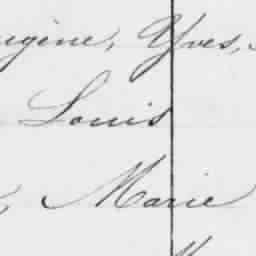 ugène, Yves,
Louis
Marie